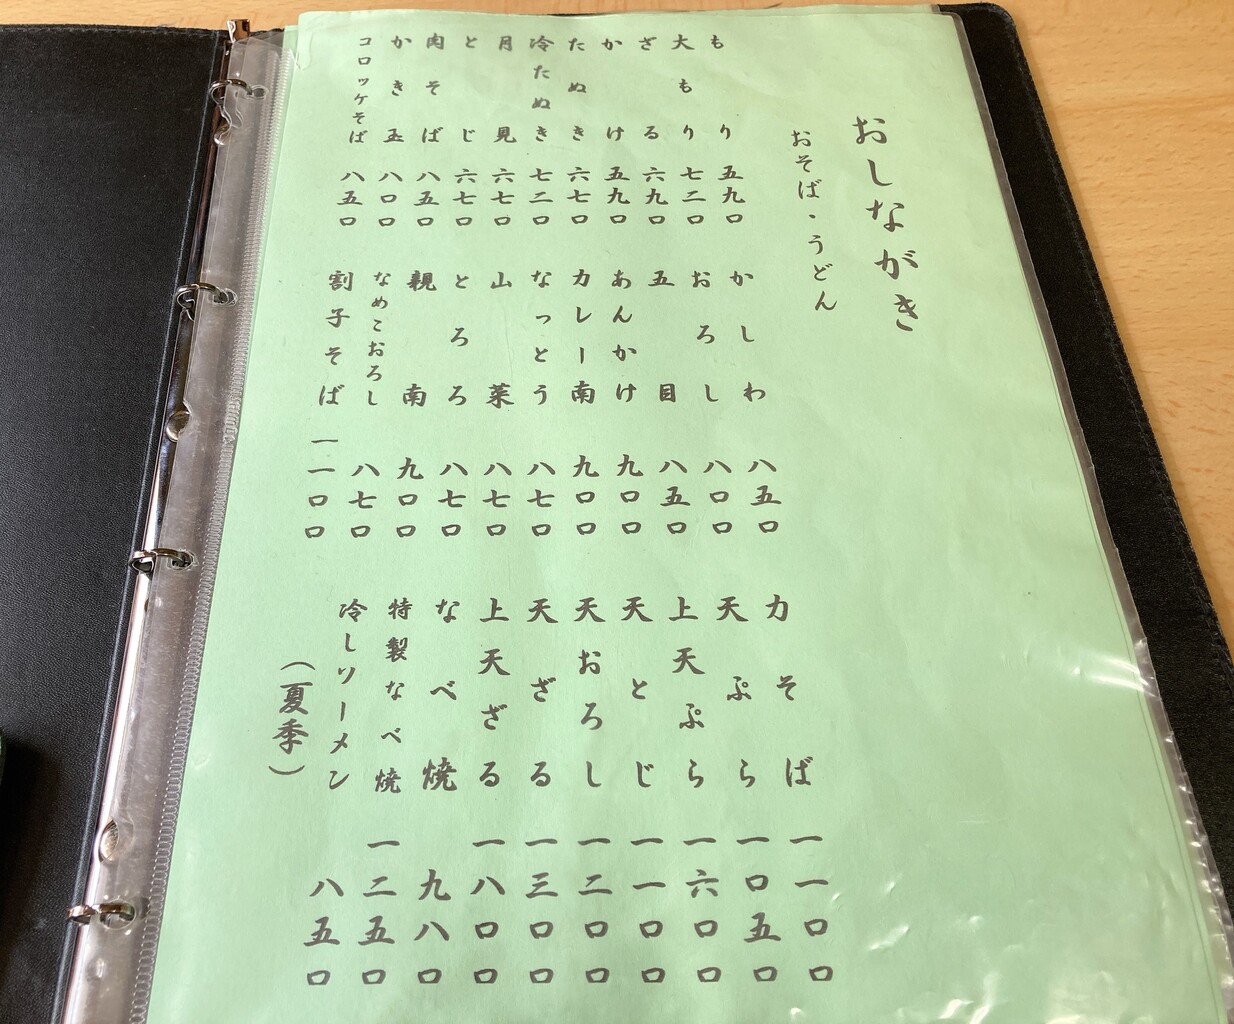 おしながき
おそば・うどん
もり 五九〇
大もり 七二〇
ざる 六九〇
かけ 五九〇
たぬき 六七〇
冷たぬき 七二〇
月見 六七〇
とじ 六七〇
肉そば 八五〇
かき玉 八〇〇
コロッケそば 八五〇
かしわ 八五〇
おろし 八〇〇
五目 八五〇
あんかけ 九〇〇
カレー南 九〇〇
なっとう 八七〇
山菜 八七〇
とろろ 八七〇
親南 九〇〇
なめこおろし 八七〇
割子そば 一一〇〇
力そば 一一〇〇
天ぷら 一〇五〇
上天ぷら 一六〇〇
天とじ 一一〇〇
天おろし 一二〇〇
天ざる 一三〇〇
上天ざる 一八〇〇
なべ焼 九八〇
特製なべ焼 一二五〇
冷しソーメン 八五〇
（夏季）